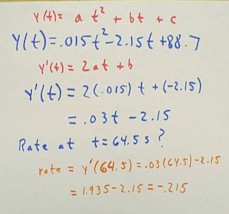 Y(t) = a t² + bt + c
Y(t) = .015t² - 2.15t + 88.7
Y'(t) = 2at + b
Y'(t) = 2(.015) t + (-2.15)
= .03t - 2.15
Rate at t = 64.5 s ?
rate = Y'(64.5) = .03(64.5) - 2.15
= 1.935 - 2.15 = -.215